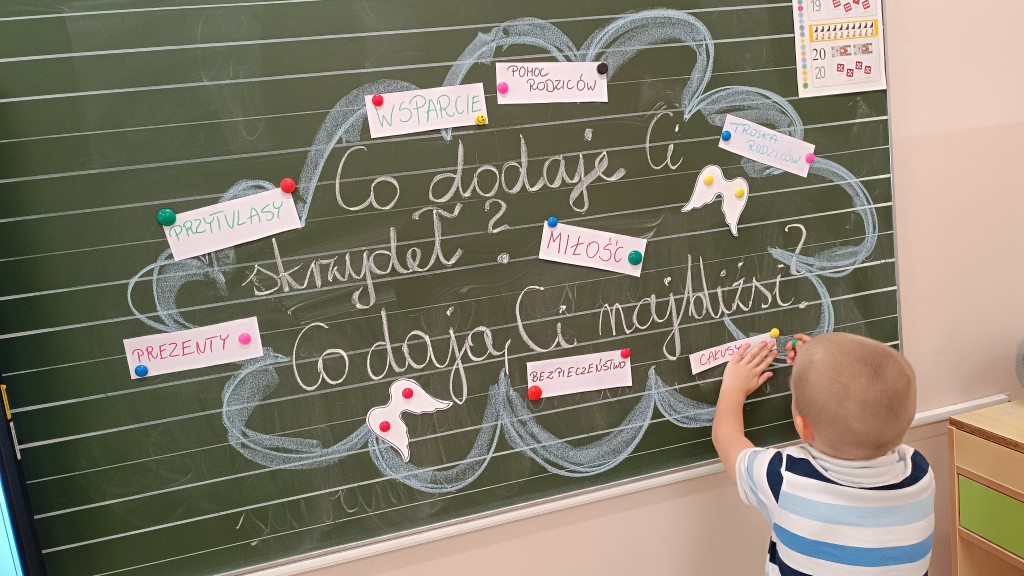 WSPARCIE
POMOC
RODZICÓW
TROSKA
RODZICÓW
PRZYTULASY
Co dodaje Ci
skrzydeł?
MIŁOŚĆ
Co dają Ci najbliżsi?
PREZENTY
BEZPIECZEŃSTWO
CAŁUSY
19
20
20